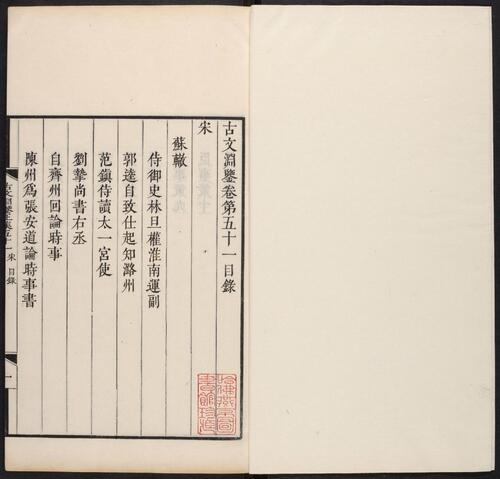 古文淵鑒卷第五十一目錄
宋
蘇轍
侍御史林旦權淮南運副
郭逵自致仕起知潞州
范鎮侍讀太一宮使
劉摯尚書右丞
自齊州回論時事
陳州為張安道論時事書
古文淵鑒卷五十一 宋 目錄
一
哈佛燕京圖書館珍藏